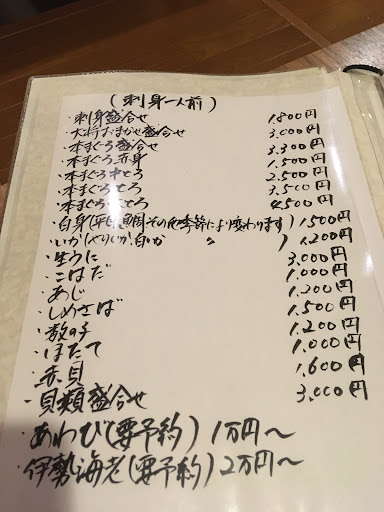 (刺身一人前)
・刺身盛合せ 1.800円
・大将おまかせ盛合せ 3.000円
・本まぐろ盛合せ 3.300円
・本まぐろ赤身 1.500円
・本まぐろ中とろ 2.500円
・本まぐろ とろ 3.500円
・本まぐろ とろ 4.500円
・白身(平目、真鯛その他季節により変わります) 1500円
・いか(やりいか、白いか 〃 ) 1.200円
・生うに 3.000円
・こはだ 1.000円
・あじ 1.200円
・しめさば 1.500円
・数の子 1.200円
・ほたて 1.000円
・赤貝 1.600円
・貝類盛合せ 3.000円
・あわび(要予約) 1万円～
・伊勢海老(要予約) 2万円～